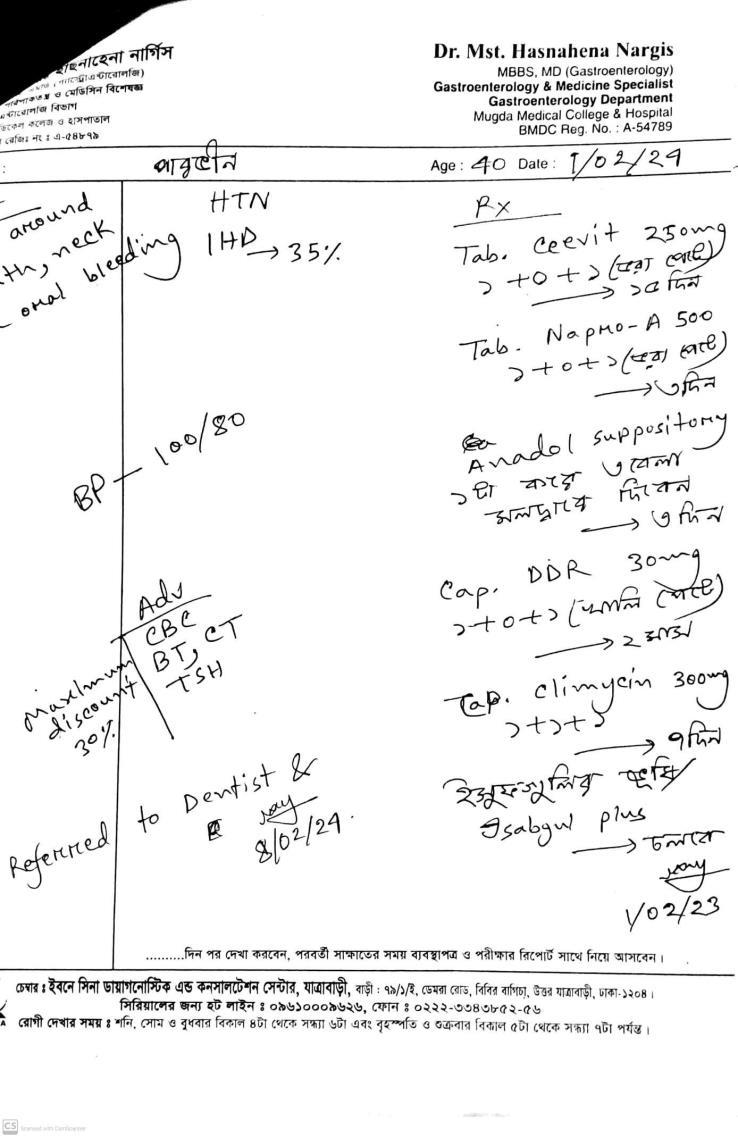 হাছনাহেনা নার্গিস
(গ্যাস্ট্রোএন্টারোলজি)
ও মেডিসিন বিশেষজ্ঞ
বিভাগ
কলেজ ও হাসপাতাল
রেজিঃ নং ঃ এ-৫৪৮৭৯
Dr. Mst. Hasnahena Nargis
MBBS, MD (Gastroenterology)
Gastroenterology & Medicine Specialist
Gastroenterology Department
Mugda Medical College & Hospital
BMDC Reg. No. : A-54789
Age : 40 Date : 1/02/24
around
neck
oral bleeding
HTN
IHD → 35%
BP — 100/80
Adv
CBC
BT, CT
TSH
Maximum
discount
30%
Referred to Dentist &
8/02/24.
Rx
Tab. Ceevit 250mg
১+০+১ (ভরা পেটে)
→ ১৫ দিন
Tab. Napro-A 500
১+০+১ (ভরা পেটে)
→ ৩দিন
Anadol suppository
১টা করে ৩বেলা
মলদ্বারে দিবেন
→ ৩ দিন
Cap. DDR 30mg
১+০+১ (খালি পেটে)
→ ২ মাস
Cap. Climycin 300mg
১+১+১
→ ৭দিন
ইসুফগুলির ভূষি
Isabgul plus
→ চলবে
1/02/23
..........দিন পর দেখা করবেন, পরবর্তী সাক্ষাতের সময় ব্যবস্থাপত্র ও পরীক্ষার রিপোর্ট সাথে নিয়ে আসবেন।
চেম্বার ঃ ইবনে সিনা ডায়াগনোস্টিক এন্ড কনসালটেশন সেন্টার, যাত্রাবাড়ী, বাড়ী : ৭৯/১/ই, ডেমরা রোড, বিবির বাগিচা, উত্তর যাত্রাবাড়ী, ঢাকা-১২০৪।
সিরিয়ালের জন্য হট লাইন ঃ ০৯৬১০০০৯৬২৬, ফোন ঃ ০২২২-৩৩৪৩৮৫২-৫৬
রোগী দেখার সময় ঃ শনি, সোম ও বুধবার বিকাল ৪টা থেকে সন্ধ্যা ৬টা এবং বৃহস্পতি ও শুক্রবার বিকাল ৫টা থেকে সন্ধ্যা ৭টা পর্যন্ত।
CS Scanned with CamScanner